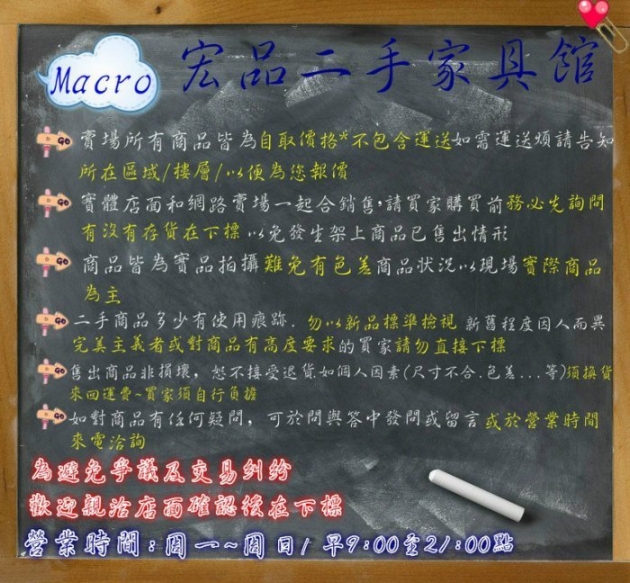 Macro 宏品二手家具館
GO 賣場所有商品皆為自取價格*不包含運送如需運送煩請告知
所在區域/樓層/以便為您報價
GO 實體店面和網路賣場一起合銷售,請買家購買前務必先詢問
有沒有存貨在下標以免發生架上商品已售出情形
GO 商品皆為實品拍攝難免有色差商品狀況以現場實際商品
為主
GO 二手商品多少有使用痕跡.勿以新品標準檢視 新舊程度因人而異
完美主義者或對商品有高度要求的買家請勿直接下標
GO 售出商品非損壞,恕不接受退貨.如個人因素(尺寸不合.色差...等)須換貨
來回運費~買家須自行負擔
GO 如對商品有任何疑問,可於問與答中發問或留言或於營業時間
來電洽詢
為避免爭議及交易糾紛
歡迎親洽店面確認後在下標
營業時間:周一~周日/早9:00至21:00點